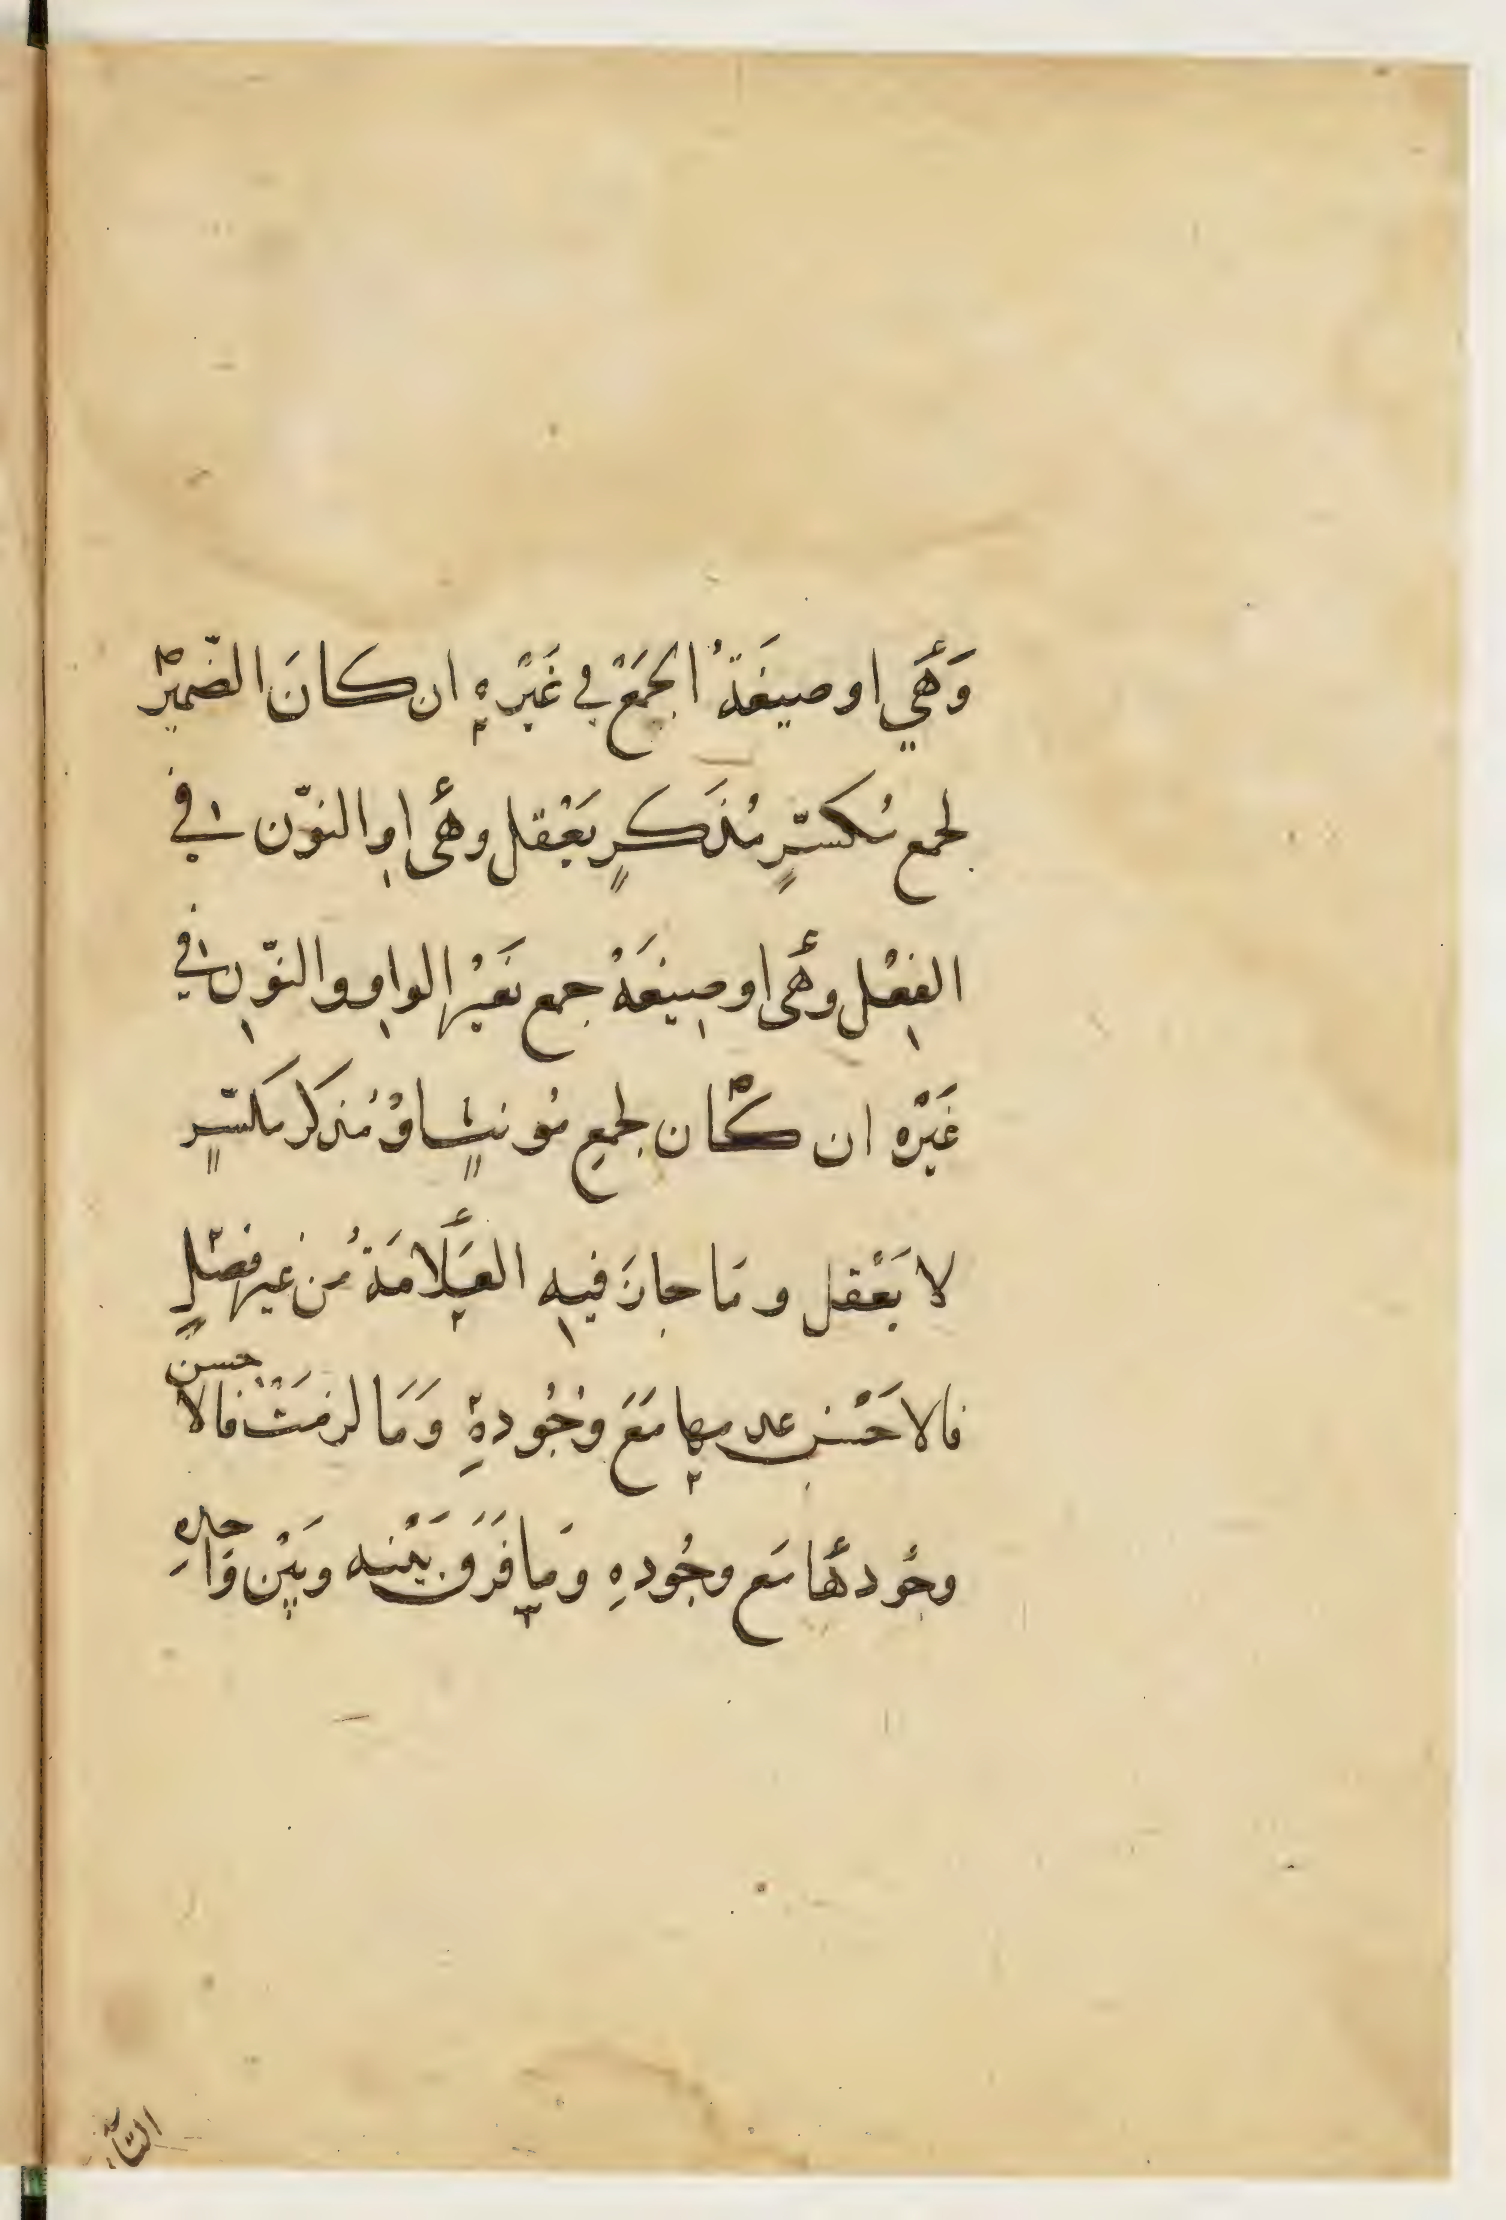 وَهْيَ او صيغَةُ الجَمَعْ في غَيْرِهِ ان كانَ الضّميْرُ
لجمع مُكسّرٍ مُذَكرٍ يَعْقل وهْى او النوّن في
الفِعْل وهْى او صِيغَةْ جمع غَيْر الواوِ والنوّنِ في
غَيْرْه ان كْان لجمعِ مُونثٍ اوْ مُذكر مكسّرٍ
لا يَعْقل ومَا جازَ فيهِ العَلَامَةُ من غير فصْلٍ
فالاحَسْن عدمها مَعَ وجُودهِ وَمَا لزمَتْ فالاحسن
وجُودهْا مَع وجُودهِ وَما فَرَقَ بَيْنه وبَيْن وَاحدهِ
التاء